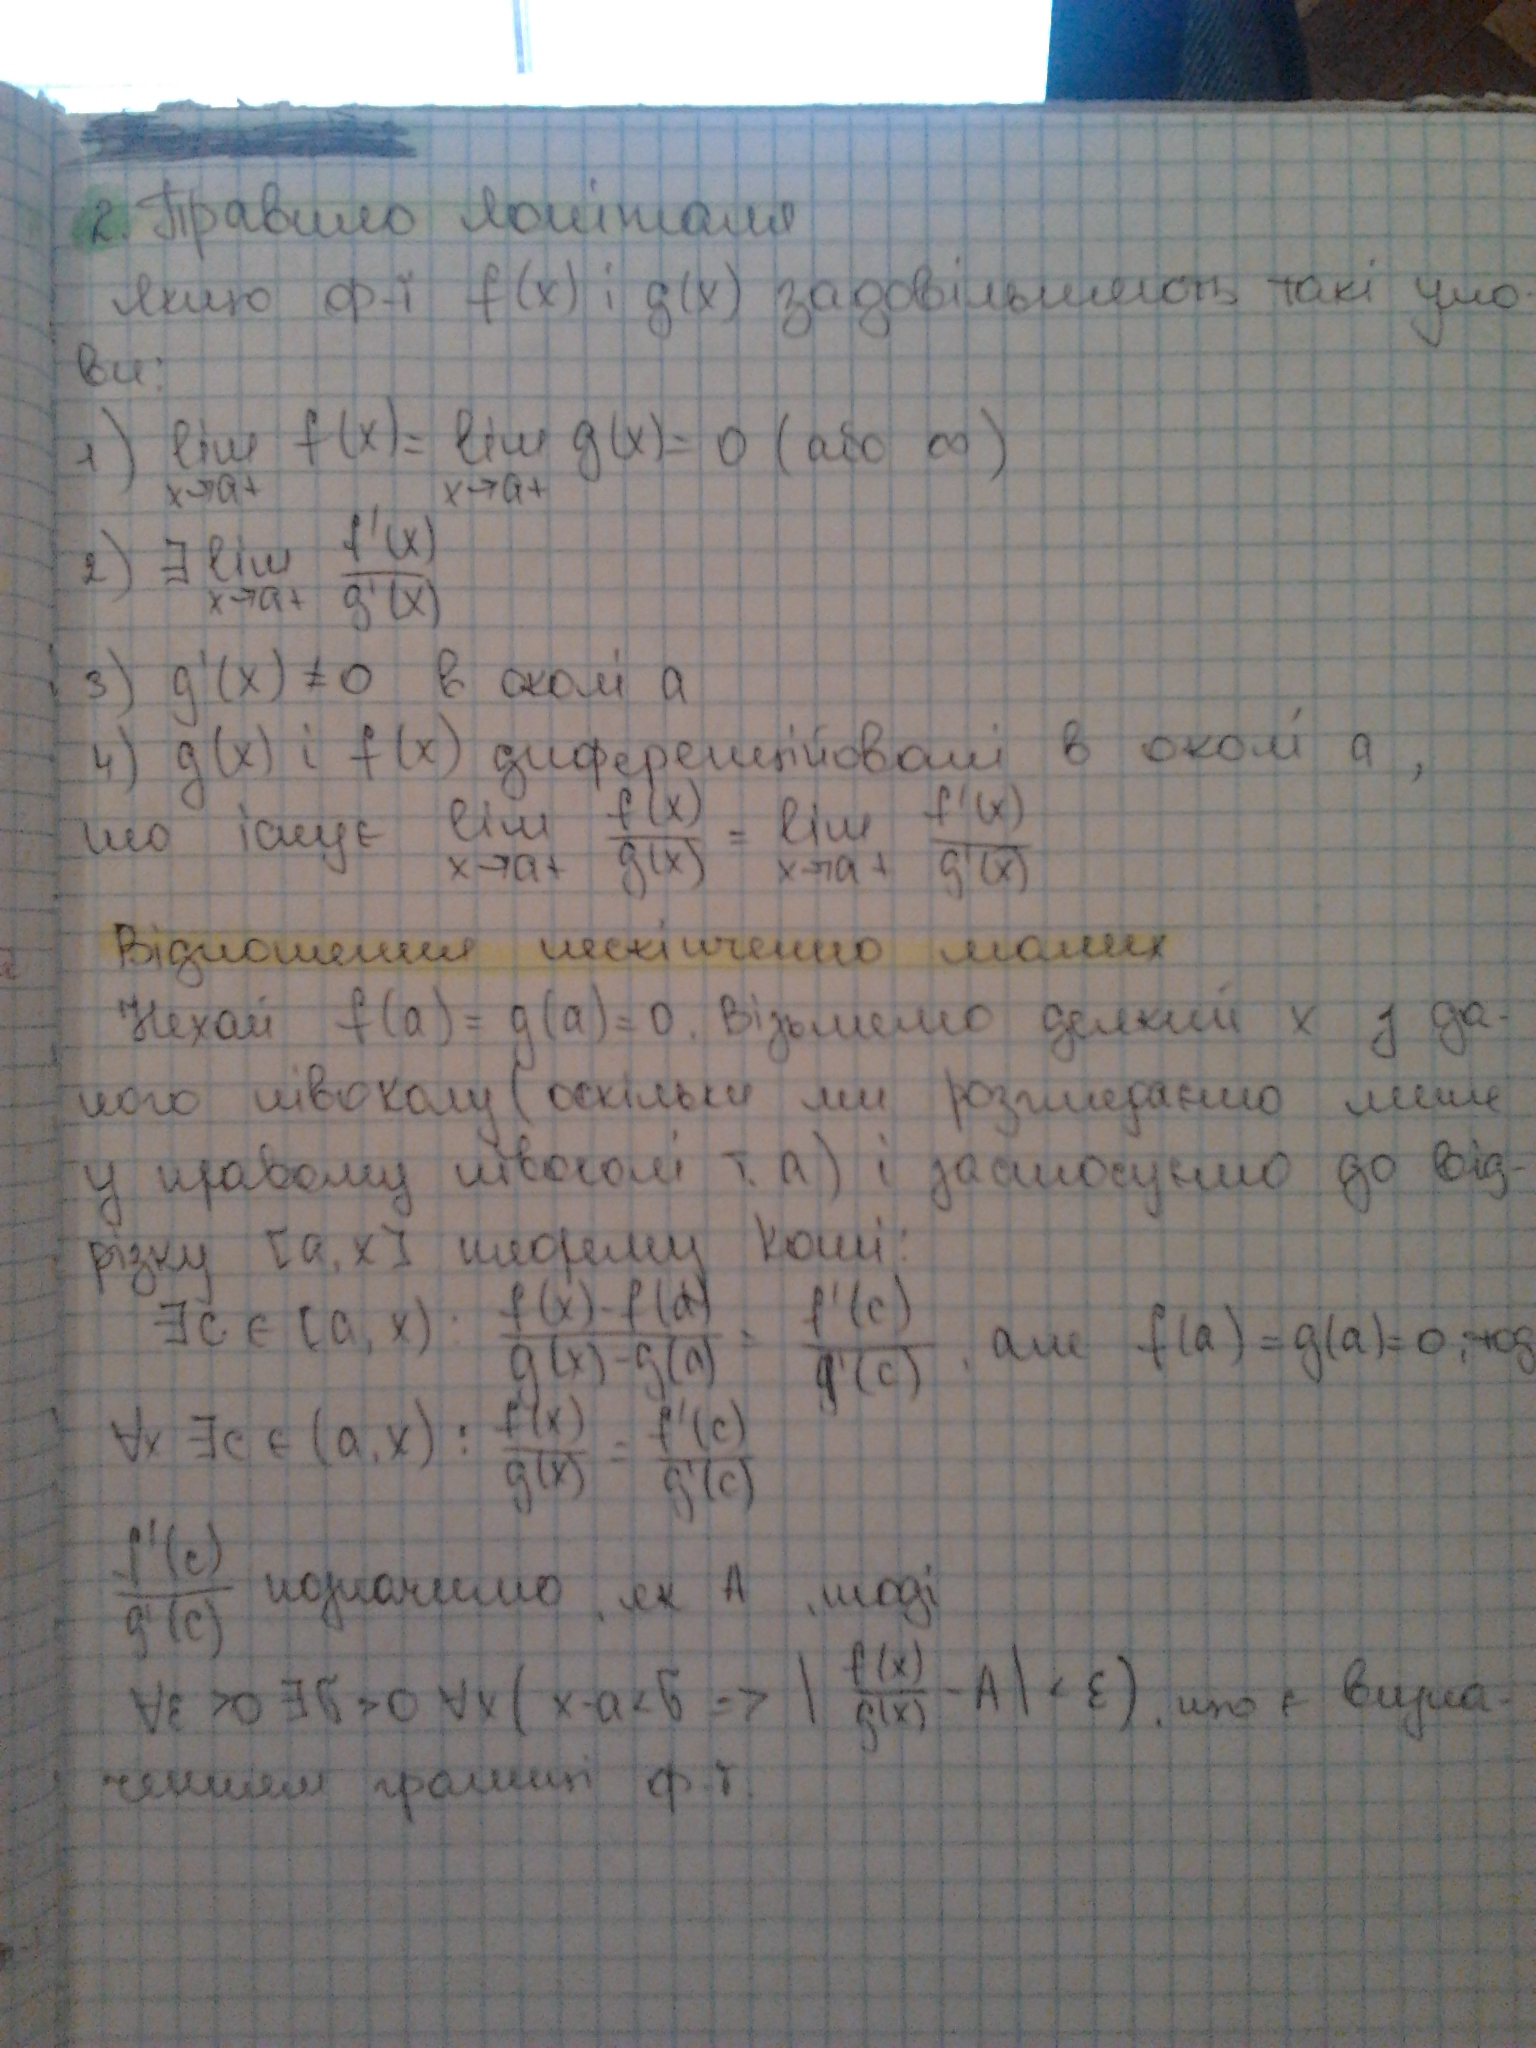 2. Правило Лопіталя
Якщо ф-ї f(x) і g(x) задовільняють такі умо-
ви:
1) lim x→a+ f(x) = lim x→a+ g(x) = 0 (або ∞)
2) ∃ lim x→a+ f'(x)/g'(x)
3) g'(x) ≠ 0 в околі a
4) g(x) і f(x) диференційовані в околі a,
то існує lim x→a+ f(x)/g(x) = lim x→a+ f'(x)/g'(x)
Відношення нескінченно малих
Нехай f(a) = g(a) = 0. Візьмемо деякий x з да-
ного півоколу (оскільки ми розглядаємо лише
у правому півоколі т. a) і застосуємо до від-
різку [a, x] теорему Коші:
∃c ∈ [a, x): f(x)-f(a)/g(x)-g(a) = f'(c)/g'(c), але f(a) = g(a) = 0, тод
∀x ∃c ∈ (a, x): f(x)/g(x) = f'(c)/g'(c)
f'(c)/g'(c) позначимо, як A, тоді
∀ε > 0 ∃δ > 0 ∀x (x-a < δ => | f(x)/g(x) - A | < ε), що є визна-
ченням границі ф-ї.